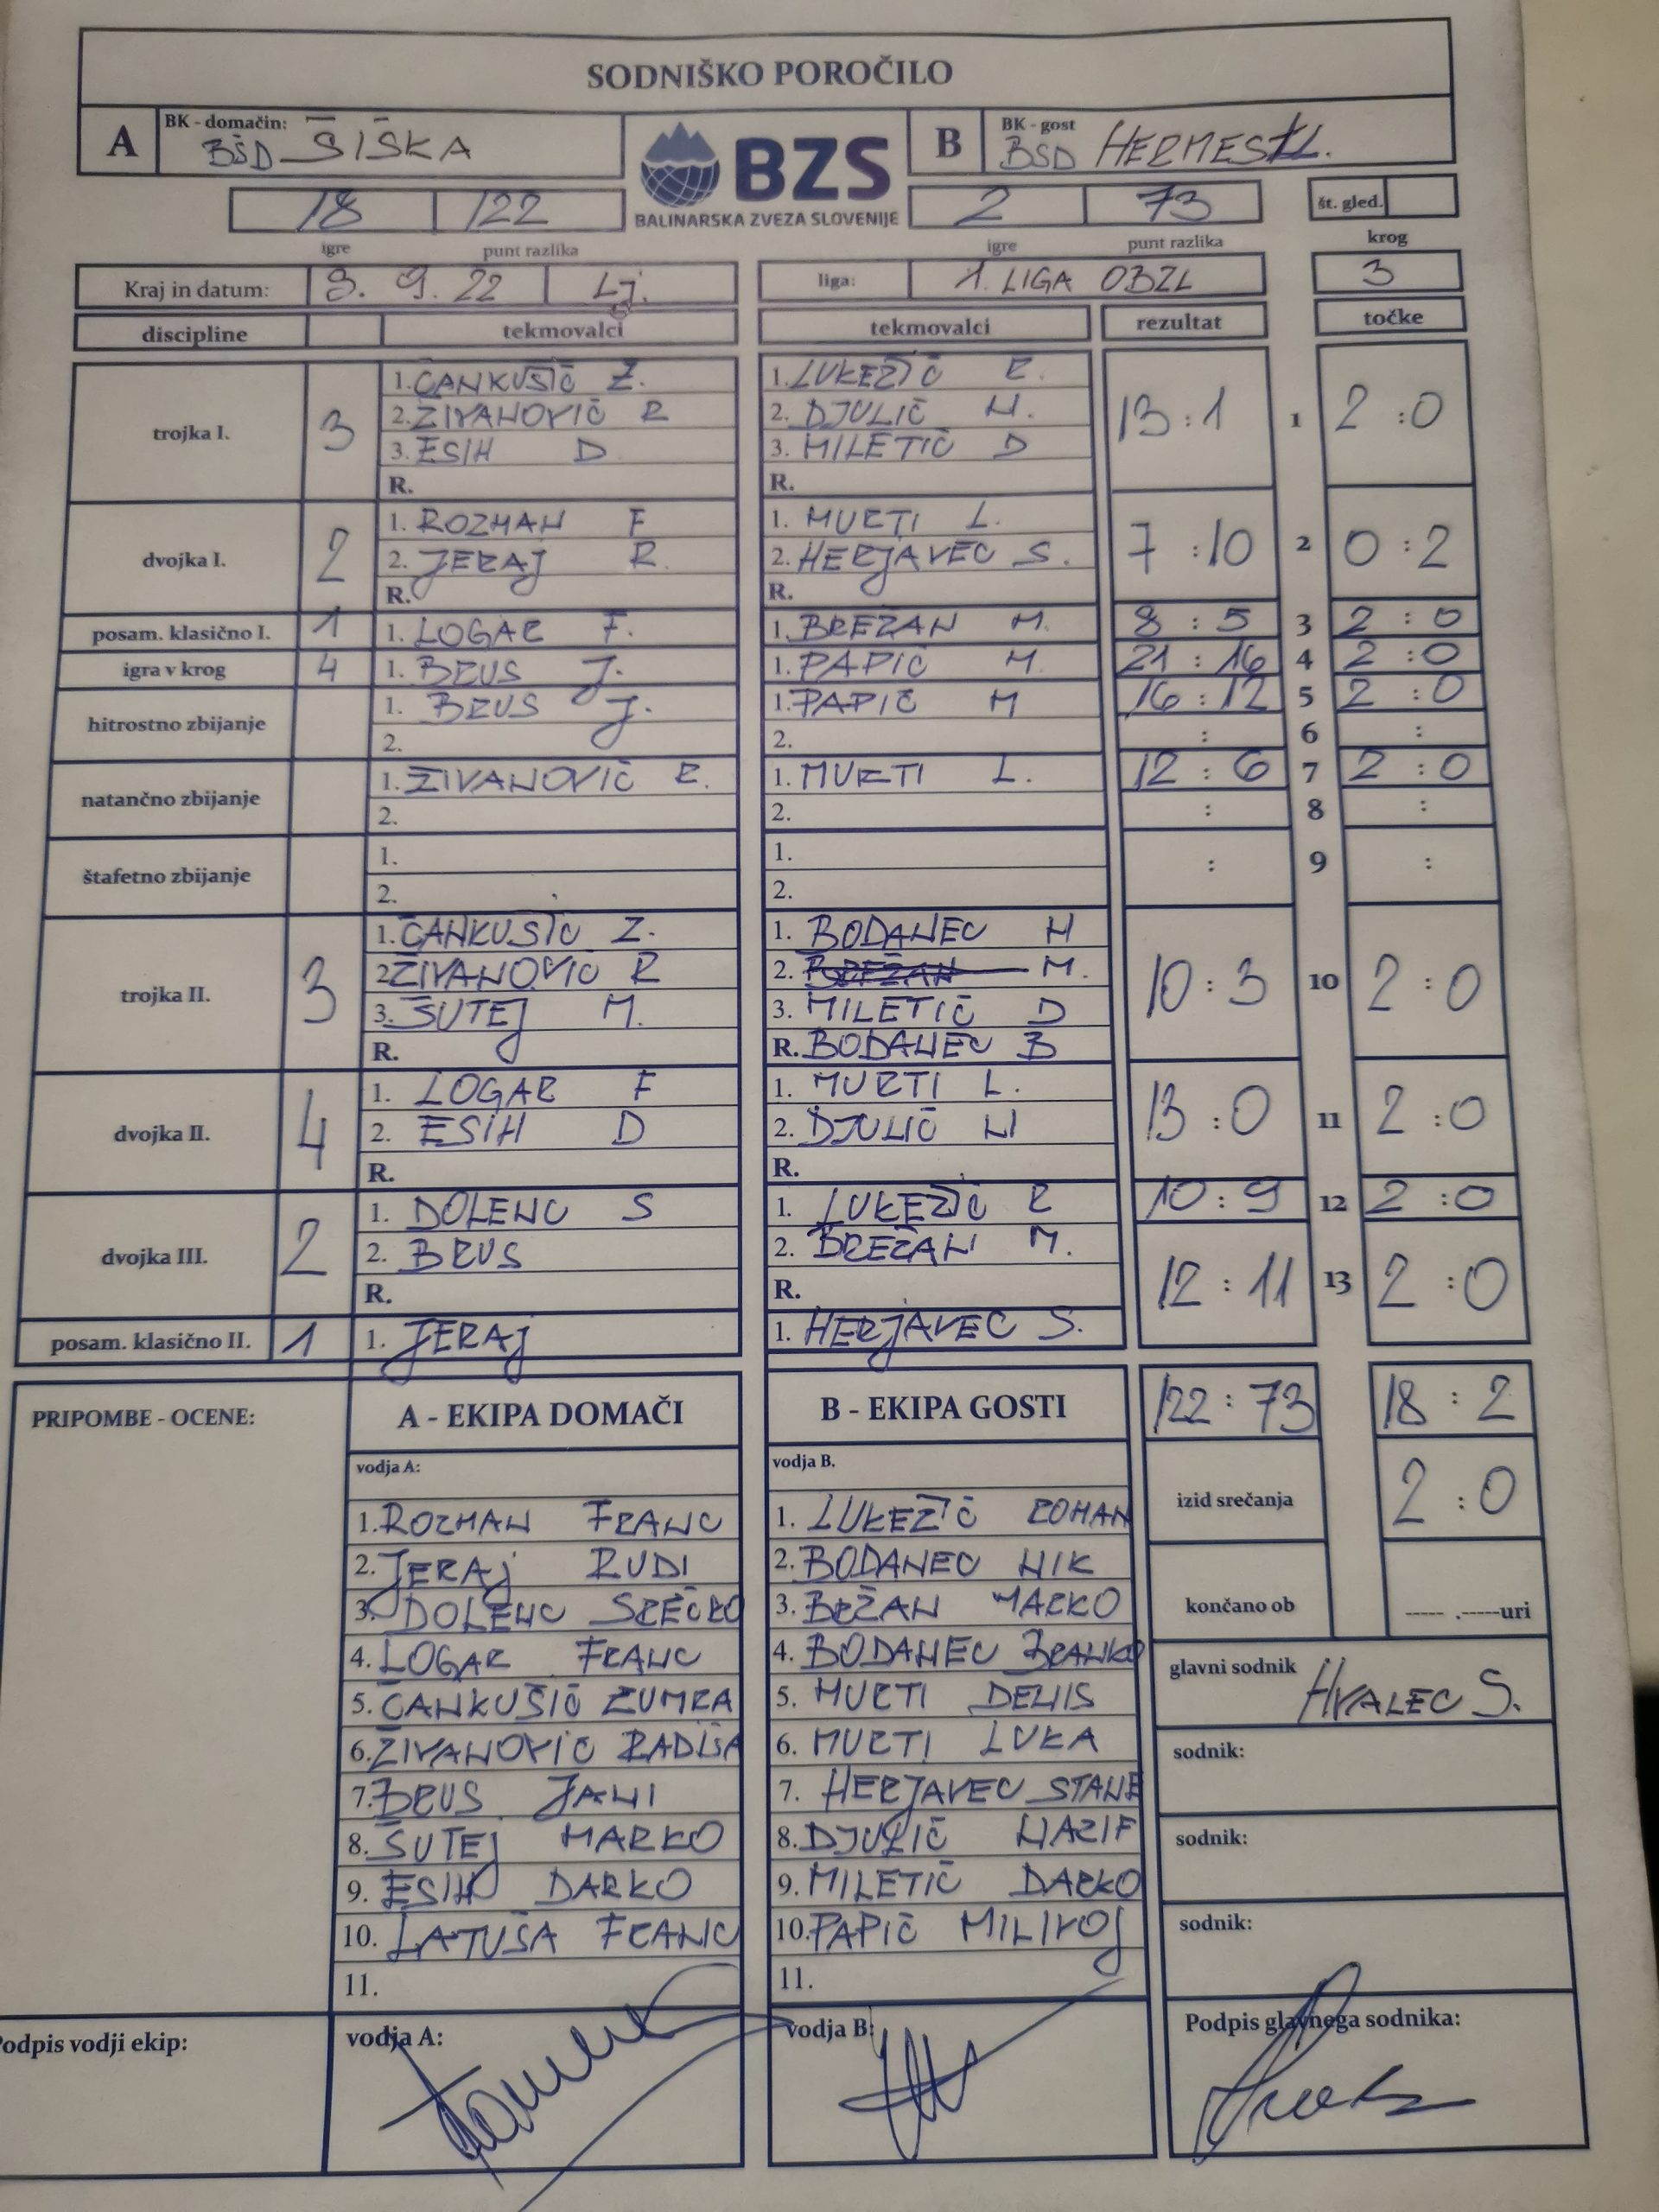 SODNIŠKO POROČILO
A BK - domačin: BŠD ŠIŠKA BZS B BK - gost BŠD HERMES
BALINARSKA ZVEZA SLOVENIJE
18 122 2 73 št. gled.
igre punt razlika igre punt razlika krog
Kraj in datum: 9. 22 Lj. liga: 1. LIGA OBZL 3
discipline tekmovalci tekmovalci rezultat točke
trojka I. 3 1. ČANKUŠIČ Z. 1. LUKEŽIČ R. 13 : 1 1 2 : 0
2. ŽIVANOVIČ R 2. DJULIČ N.
3. ESIH D 3. MILETIČ D
R. R.
dvojka I. 2 1. ROZMAN F 1. MURTI L. 7 : 10 2 0 : 2
2. JERAJ R. 2. HERJAVEC S.
R. R.
posam. klasično I. 1 1. LOGAR F. 1. BREŽAN M. 8 : 5 3 2 : 0
igra v krog 4 1. BRUS J. 1. PAPIČ M. 21 : 16 4 2 : 0
hitrostno zbijanje 1. BRUS J. 1. PAPIČ M 16 : 12 5 2 : 0
2. 2. : 6 :
natančno zbijanje 1. ŽIVANOVIČ R. 1. MURTI L. 12 : 6 7 2 : 0
2. 2. : 8 :
štafetno zbijanje 1. 1. : 9 :
2. 2.
trojka II. 3 1. ČANKUŠIČ Z. 1. BODANEC N 10 : 3 10 2 : 0
2. ŽIVANOVIČ R 2. BREŽAN M.
3. ŠUTEJ M. 3. MILETIČ D
R. R. BODANEC B
dvojka II. 4 1. LOGAR F 1. MURTI L. 13 : 0 11 2 : 0
2. ESIH D 2. DJULIČ N
R. R.
dvojka III. 2 1. DOLENC S 1. LUKEŽIČ R 10 : 9 12 2 : 0
2. BRUS 2. BREŽAN M.
R. R. 12 : 11 13 2 : 0
posam. klasično II. 1 1. JERAJ 1. HERJAVEC S.
PRIPOMBE - OCENE: A - EKIPA DOMAČI B - EKIPA GOSTI 122 : 73 18 : 2
vodja A: vodja B.
1. ROZMAN FRANC 1. LUKEŽIČ ROMAN izid srečanja 2 : 0
2. JERAJ RUDI 2. BODANEC NIK
3. DOLENC SREČKO 3. BRŽAN MARKO končano ob ----- .-----uri
4. LOGAR FRANC 4. BODANEC BRANKO glavni sodnik HVALEC S.
5. ČANKUŠIČ ZUMRA 5. MURTI DENIS
6. ŽIVANOVIČ RADIŠA 6. MURTI LUKA sodnik:
7. BRUS JANI 7. HERJAVEC STANE
8. ŠUTEJ MARKO 8. DJULIČ NAZIF sodnik:
9. ESIH DARKO 9. MILETIČ DARKO
10. LATUŠA FRANC 10. PAPIČ MILIVOJ sodnik:
11. 11.
Podpis vodji ekip: vodja A: vodja B: Podpis glavnega sodnika: